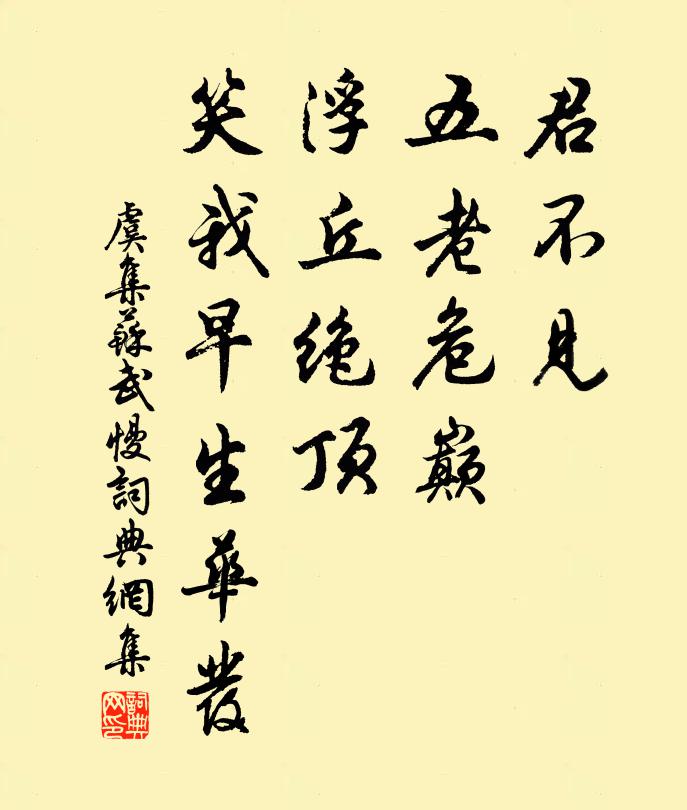 君不見
五老危巔
浮丘絶頂
笑我早生華發
虞集蘇武慢詞典網集
詞典網印